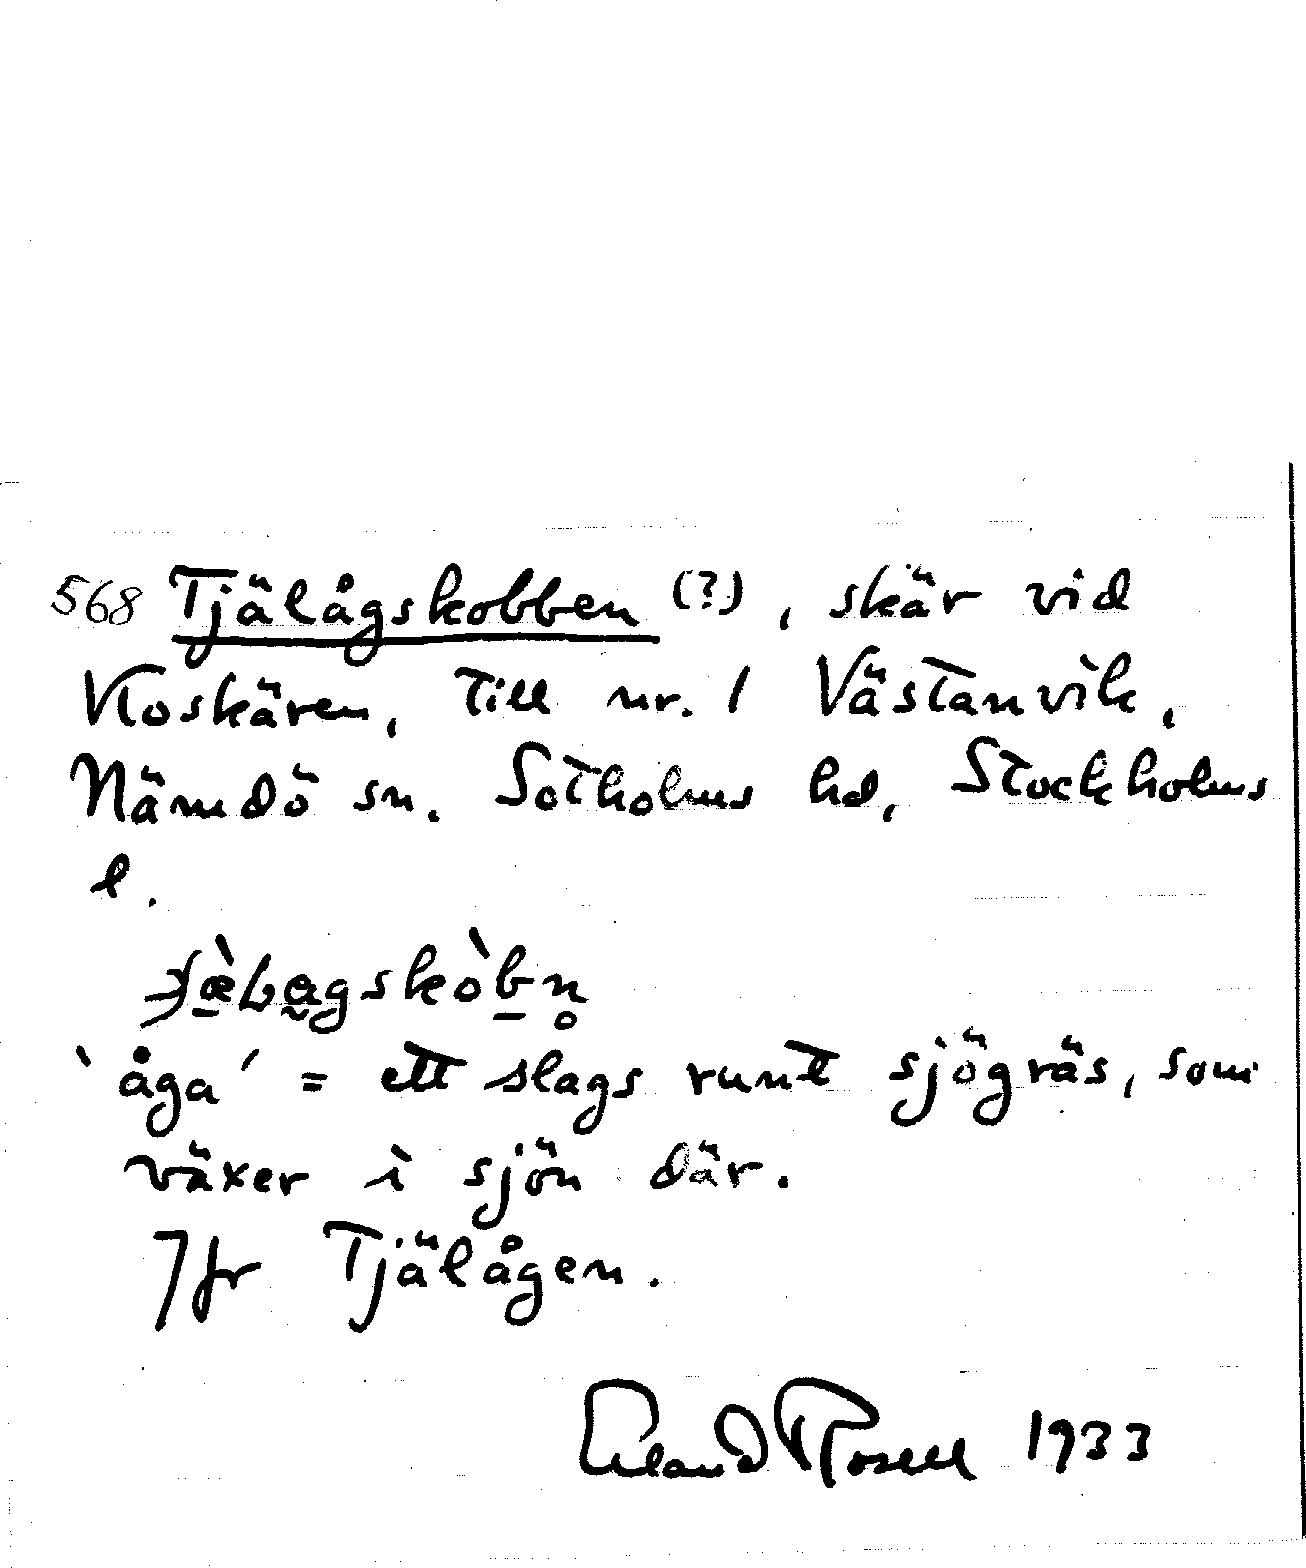 568 Tjälågskobben (?), skär vid
Kloskären, till nr. 1 Västanvik,
Nämdö sn. Sotholms hd, Stockholms
l.
`åga´ = ett slags runt sjögräs, som
växer i sjön där.
Jfr Tjälågen.
Erland Rosell 1933